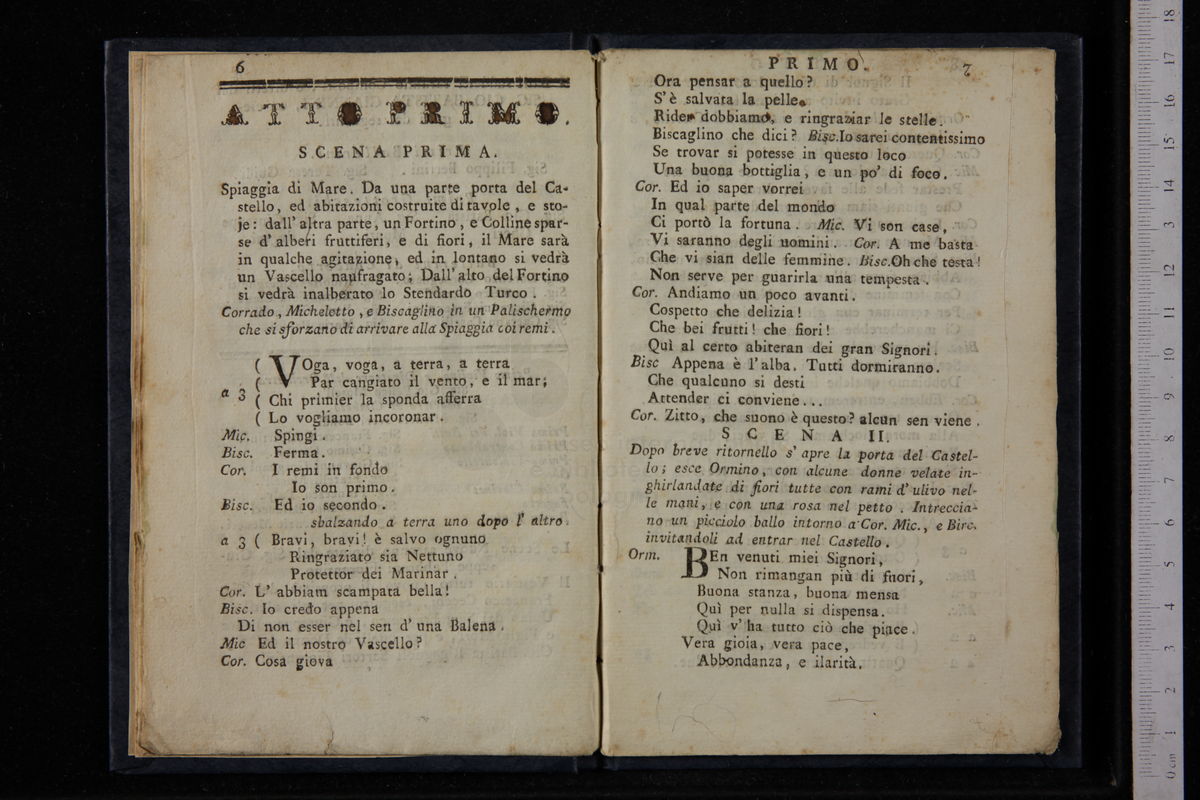 6
ATTO PRIMO.
SCENA PRIMA.
Spiaggia di Mare. Da una parte porta del Ca-
stello, ed abitazioni costruite di tavole, e sto-
je: dall' altra parte, un Fortino, e Colline spar-
se d' alberi fruttiferi, e di fiori, il Mare sarà
in qualche agitazione, ed in lontano si vedrà
un Vascello naufragato; Dall' alto del Fortino
si vedrà inalberato lo Stendardo Turco.
Corrado, Micheletto, e Biscaglino in un Palischermo
che si sforzano di arrivare alla Spiaggia coi remi.
( VOga, voga, a terra, a terra
( Par cangiato il vento, e il mar;
a 3 ( Chi primier la sponda afferra
( Lo vogliamo incoronar.
Mic. Spingi.
Bisc. Ferma.
Cor. I remi in fondo
Io son primo.
Bisc. Ed io secondo.
sbalzando a terra uno dopo l' altro.
a 3 ( Bravi, bravi! è salvo ognuno
Ringraziato sia Nettuno
Protettor dei Marinar.
Cor. L' abbiam scampata bella!
Bisc. Io credo appena
Di non esser nel sen d' una Balena.
Mic Ed il nostro Vascello?
Cor. Cosa giova
PRIMO. 7
Ora pensar a quello?
S' è salvata la pelle.
Rider dobbiamo, e ringraziar le stelle.
Biscaglino che dici? Bisc.Io sarei contentissimo
Se trovar si potesse in questo loco
Una buona bottiglia, e un po' di foco.
Cor. Ed io saper vorrei
In qual parte del mondo
Ci portò la fortuna. Mic. Vi son case,
Vi saranno degli uomini. Cor. A me basta
Che vi sian delle femmine. Bisc.Oh che testa!
Non serve per guarirla una tempesta.
Cor. Andiamo un poco avanti.
Cospetto che delizia!
Che bei frutti! che fiori!
Quì al certo abiteran dei gran Signori.
Bisc Appena è l' alba. Tutti dormiranno.
Che qualcuno si desti
Attender ci conviene...
Cor. Zitto, che suono è questo? alcun sen viene.
SCENA II.
Dopo breve ritornello s' apre la porta del Castel-
lo; esce Ormino, con alcune donne velate in-
ghirlandate di fiori tutte con rami d' ulivo nel-
le mani, e con una rosa nel petto. Intreccia-
no un picciolo ballo intorno a Cor. Mic., e Birc.
invitandoli ad entrar nel Castello.
Orm. BEn venuti miei Signori,
Non rimangan più di fuori,
Buona stanza, buona mensa
Quì per nulla si dispensa.
Quì v' ha tutto ciò che piace.
Vera gioia, vera pace,
Abbondanza, e ilarità.
0 cm 1 2 3 4 5 6 7 8 9 10 11 12 13 14 15 16 17 18